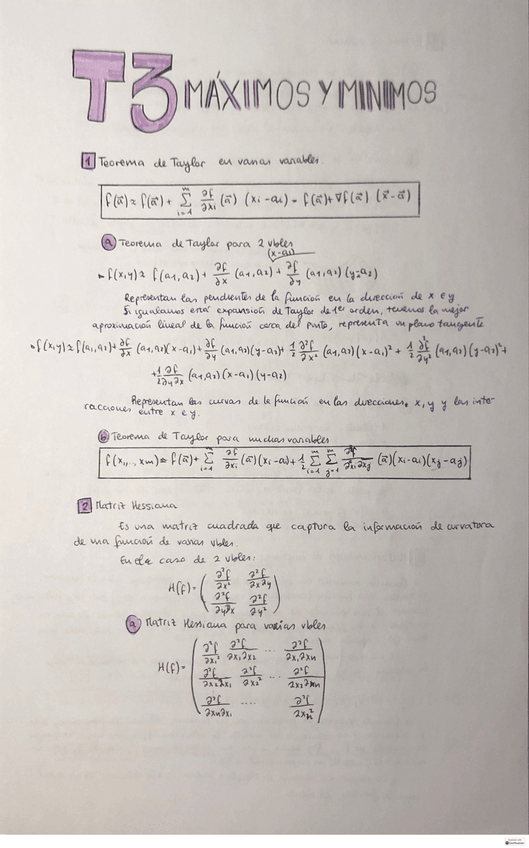 T3 MÁXIMOS Y MINIMOS
1 Teorema de Taylor en varias variables.
f(a⃗) ≈ f(a⃗) + ∑_{i=1}^{m} ∂f/∂xᵢ (a⃗) (xᵢ-aᵢ) = f(a⃗) + ∇f(a⃗) (x⃗-a⃗)
a Teorema de Taylor para 2 vbles
(x-a₁)
f(x,y) ≈ f(a₁,a₂) + ∂f/∂x (a₁,a₂) + ∂f/∂y (a₁,a₂) (y-a₂)
Representan las pendientes de la función en la dirección de x e y
Si igualamos esta expansión de Taylor de 1er orden, tenemos la mejor
aproximación lineal de la función cerca del punto, representa un plano tangente
f(x,y) ≈ f(a₁,a₂) + ∂f/∂x (a₁,a₂)(x-a₁) + ∂f/∂y (a₁,a₂)(y-a₂) + 1/2 ∂²f/∂x² (a₁,a₂)(x-a₁)² + 1/2 ∂²f/∂y² (a₁,a₂)(y-a₂)² +
+ 1/2 ∂f/∂y∂x (a₁,a₂)(x-a₁)(y-a₂)
Representan las curvas de la función en las direcciones x, y y las inte-
racciones entre x e y.
b Teorema de Taylor para muchas variables
f(x₁,..., xm) ≈ f(a⃗) + ∑_{i=1}^{m} ∂f/∂xᵢ (a⃗)(xᵢ-aᵢ) + 1/2 ∑_{i=1}^{m} ∑_{j=1}^{m} ∂²f/∂xᵢ∂xⱼ (a⃗)(xᵢ-aᵢ)(xⱼ-aⱼ)
2 Matriz Hessiana
Es una matriz cuadrada que captura la información de curvatora
de una función de varias vbles.
En el caso de 2 vbles:
H(f) = ( ∂²f/∂x² ∂²f/∂x∂y
∂²f/∂y∂x ∂²f/∂y² )
a Matriz Hessiana para varias vbles
H(f) = ( ∂²f/∂x₁² ∂²f/∂x₁∂x₂ ... ∂²f/∂x₁∂xn
∂²f/∂x₂∂x₁ ∂²f/∂x₂² ... ∂²f/∂x₂∂xn
∂²f/∂xn∂x₁ .... ∂²f/∂xn² )